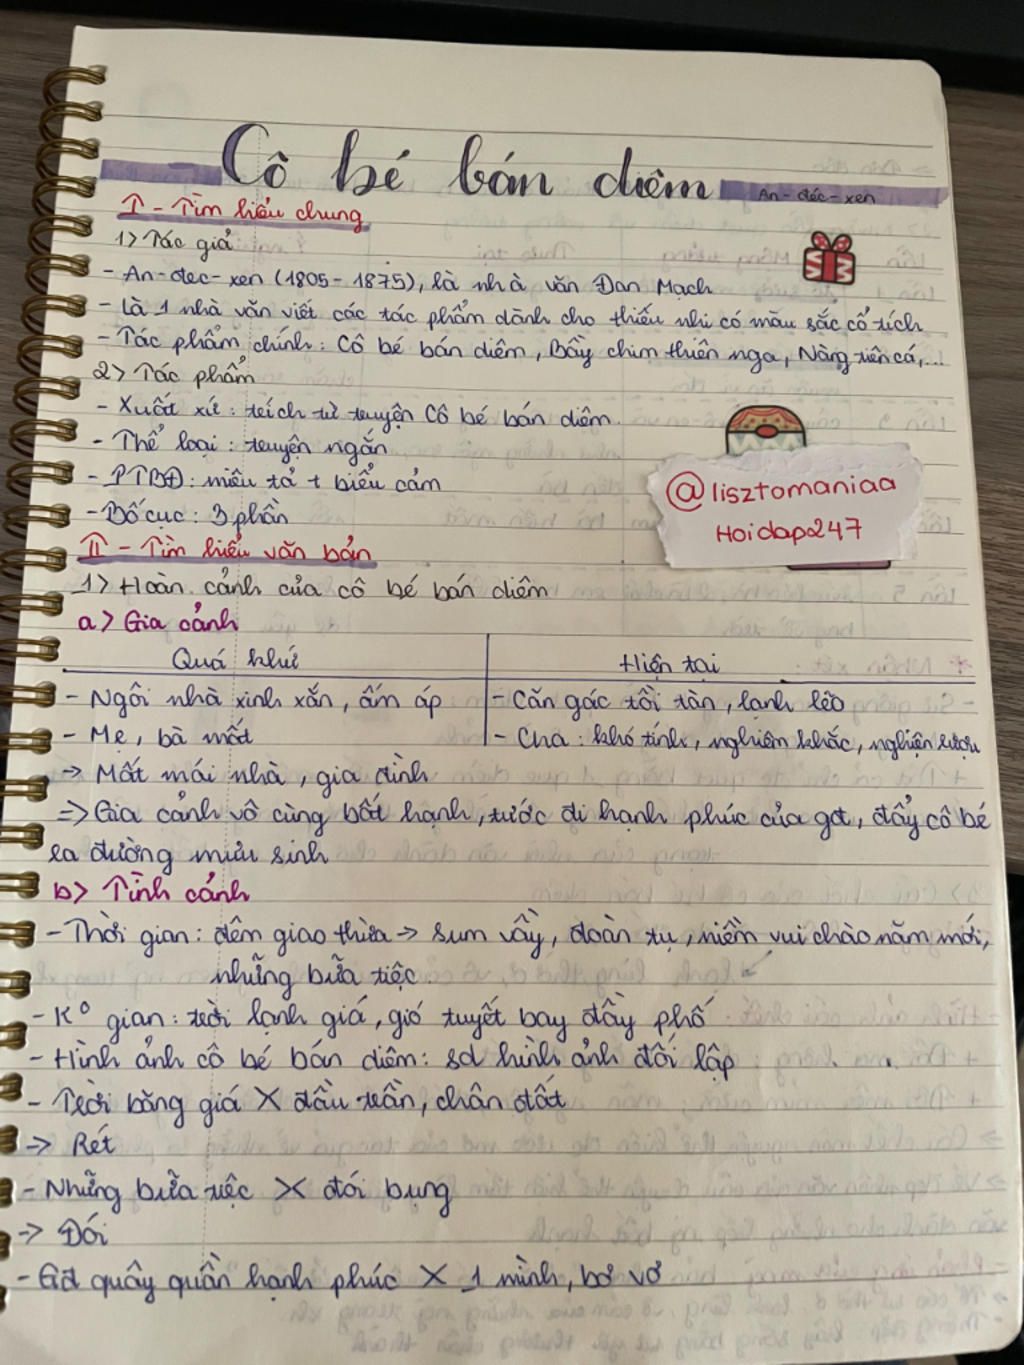 Cô bé bán diêm
An-đéc-xen
I - Tìm hiểu chung
1> Tác giả
- An-đec-xen (1805-1875), là nhà văn Đan Mạch
- là 1 nhà văn viết các tác phẩm dành cho thiếu nhi có màu sắc cổ tích
- Tác phẩm chính: Cô bé bán diêm, Bầy chim thiên nga, Nàng tiên cá,...
2> Tác phẩm
- Xuất xứ: trích từ truyện Cô bé bán diêm.
- Thể loại: truyện ngắn
- PTBĐ: miêu tả + biểu cảm
- Bố cục: 3 phần
@lisztomaniaa
Hoidap247
II - Tìm hiểu văn bản
1> Hoàn cảnh của cô bé bán diêm
a> Gia cảnh
Quá khứ Hiện tại
- Ngôi nhà xinh xắn, ấm áp - Căn gác tồi tàn, lạnh lẽo
- Mẹ, bà mất - Cha: khó tính, nghiêm khắc, nghiện rượu
-> Mất mái nhà, gia đình
=> Gia cảnh vô cùng bất hạnh, tước đi hạnh phúc của gđ, đẩy cô bé
ra đường mưu sinh
b> Tình cảnh
- Thời gian: đêm giao thừa -> sum vầy, đoàn tụ, niềm vui chào năm mới,
những bữa tiệc.
- K° gian: trời lạnh giá, gió tuyết bay đầy phố
- Hình ảnh cô bé bán diêm: sd hình ảnh đối lập
- Trời băng giá X đầu trần, chân đất
-> Rét
- Những bữa tiệc X đói bụng
-> Đói
- Gđ quây quần hạnh phúc X 1 mình, bơ vơ